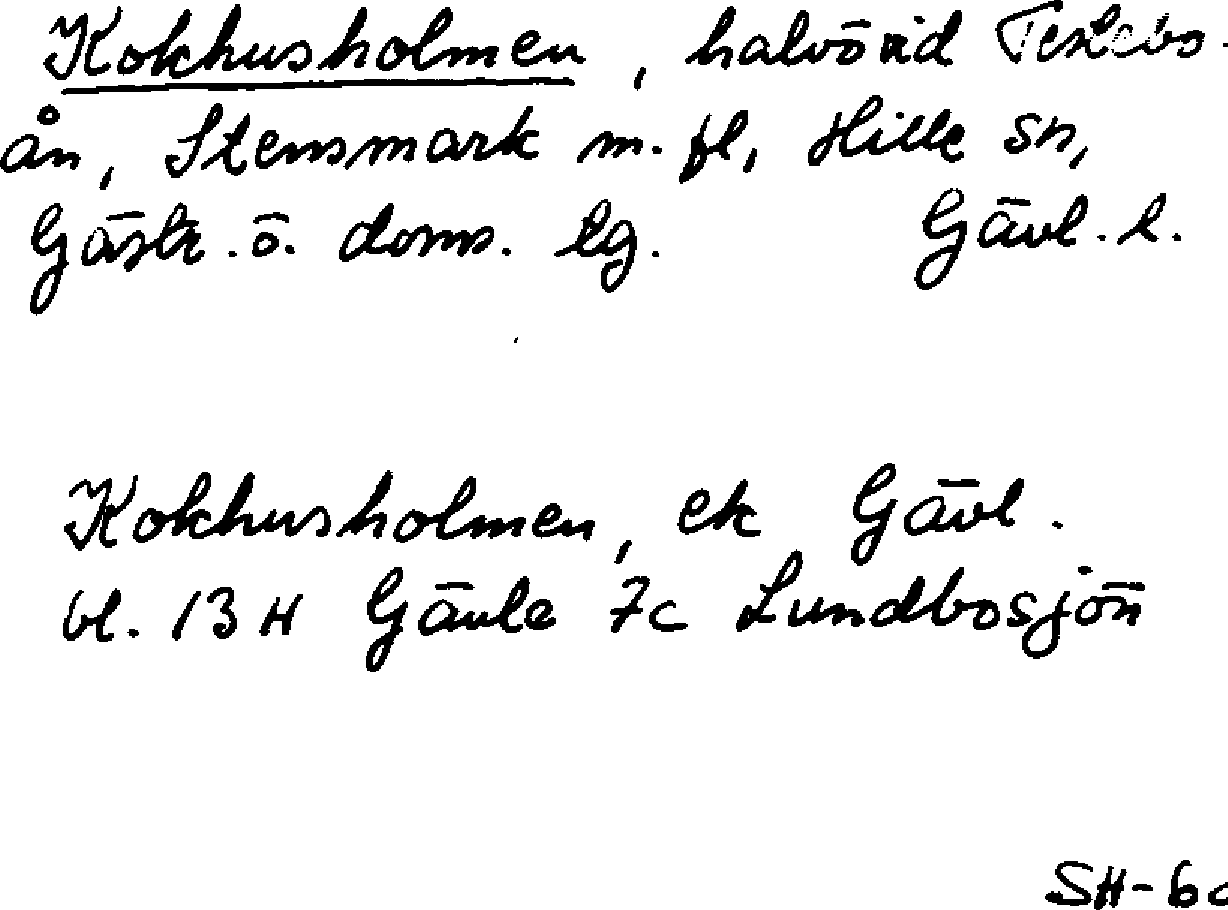 Kokhusholmen, halvö vid Testebo-
ån, Stensmark m. fl, Hille sn,
Gästr. ö. doms. lg. Gävl. l.
Kokhusholmen, ek Gävl.
bl. 13 H Gävle 7c Lundbosjön
SH-60